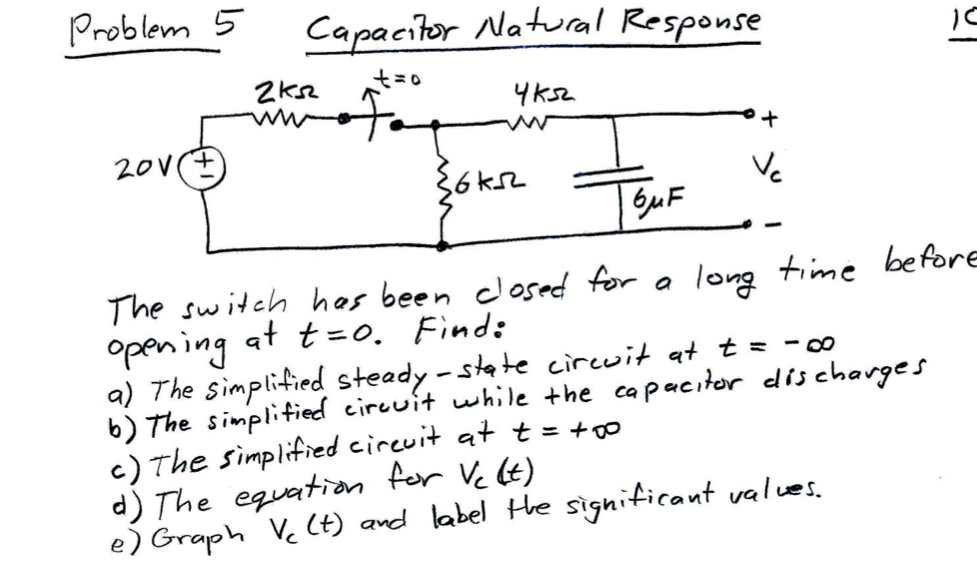 Problem 5 Capacitor Natural Response
2kΩ t=0 4kΩ
+
20V + - 6kΩ 6μF Vc
-
The switch has been closed for a long time before
opening at t=0. Find:
a) The simplified steady-state circuit at t = -∞
b) The simplified circuit while the capacitor discharges
c) The simplified circuit at t = +∞
d) The equation for Vc(t)
e) Graph Vc(t) and label the significant values.